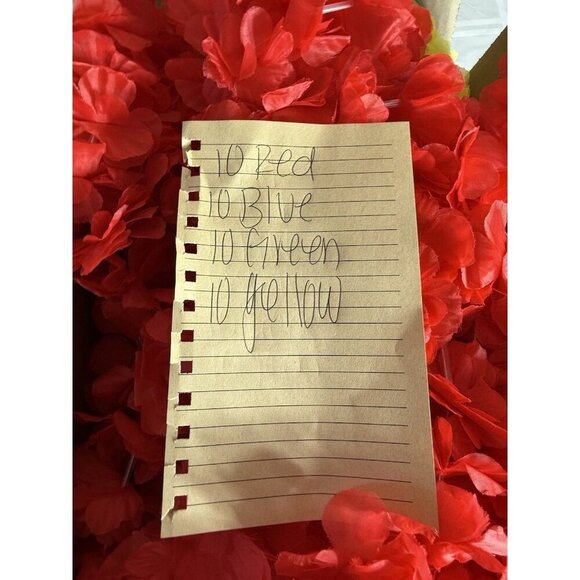 10 Red
10 Blue
10 Green
10 yellow